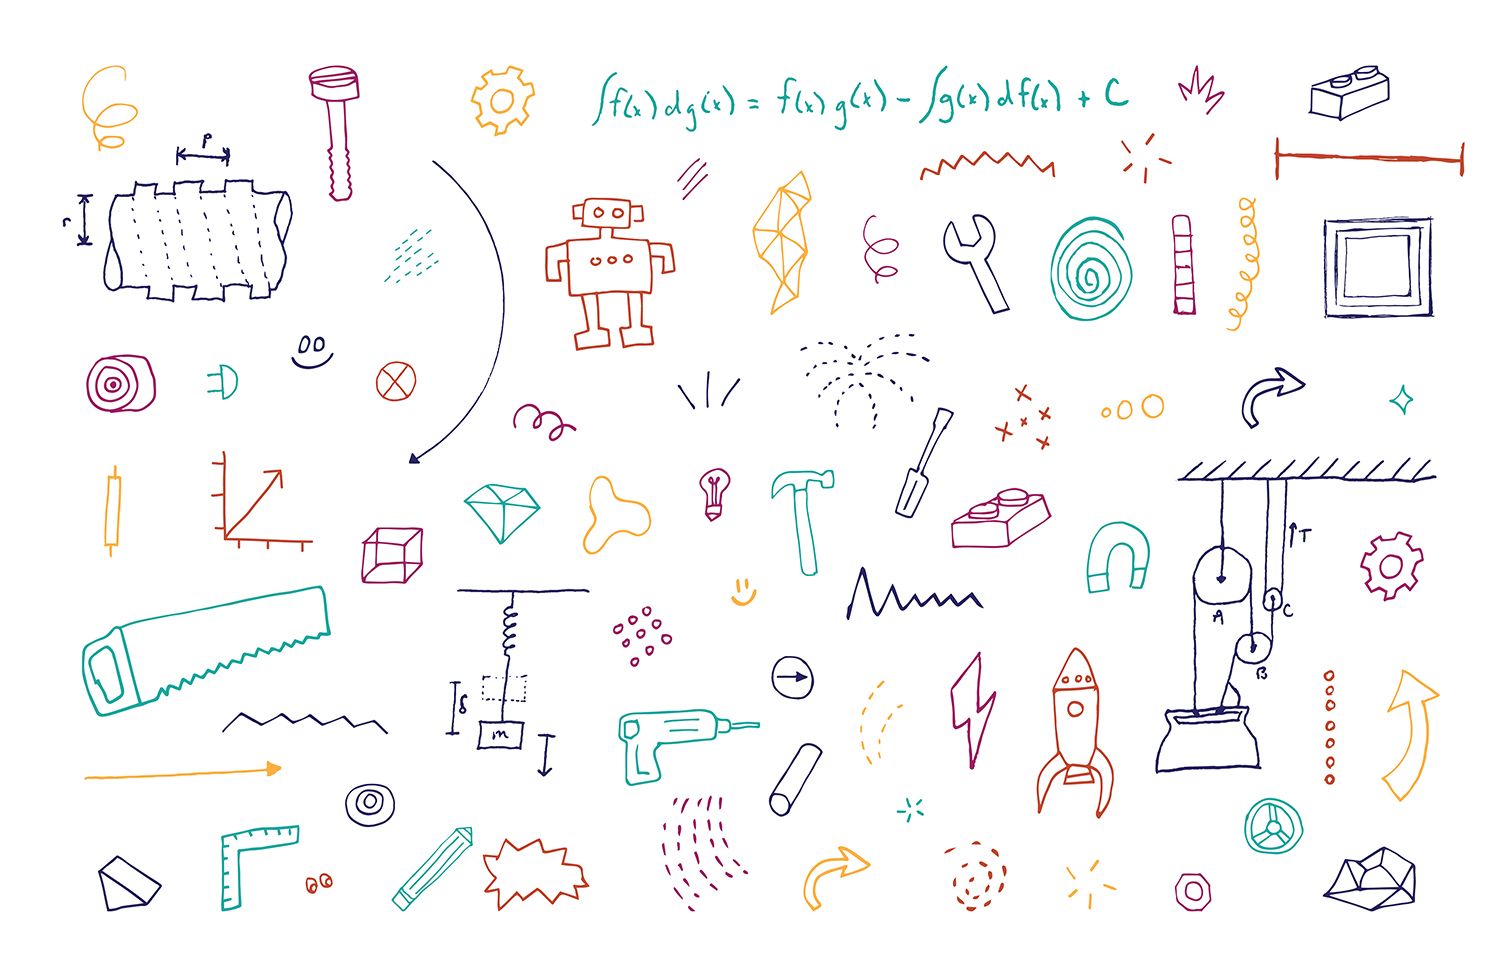 ∫f(x) dg(x) = f(x) g(x) - ∫g(x) df(x) + C
P
r
T
A
C
B
δ
m